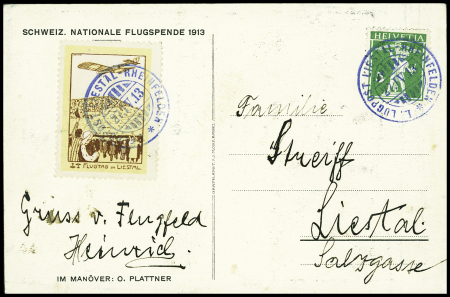 SCHWEIZ. NATIONALE FLUGSPENDE 1913
HELVETIA
LIESTAL-RHEINFELDEN
13
1T FLUGTAG IN LIESTAL
L. LUGPOST LIESTAL-RHEINFELDEN
Familie
Streiff
Liestal
Salzgasse
Gruss v. Flugfeld
Heinrich
IM MANÖVER: O. PLATTNER